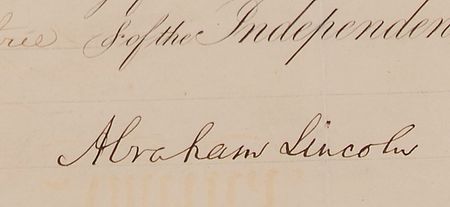 & of the Independen
Abraham Lincoln